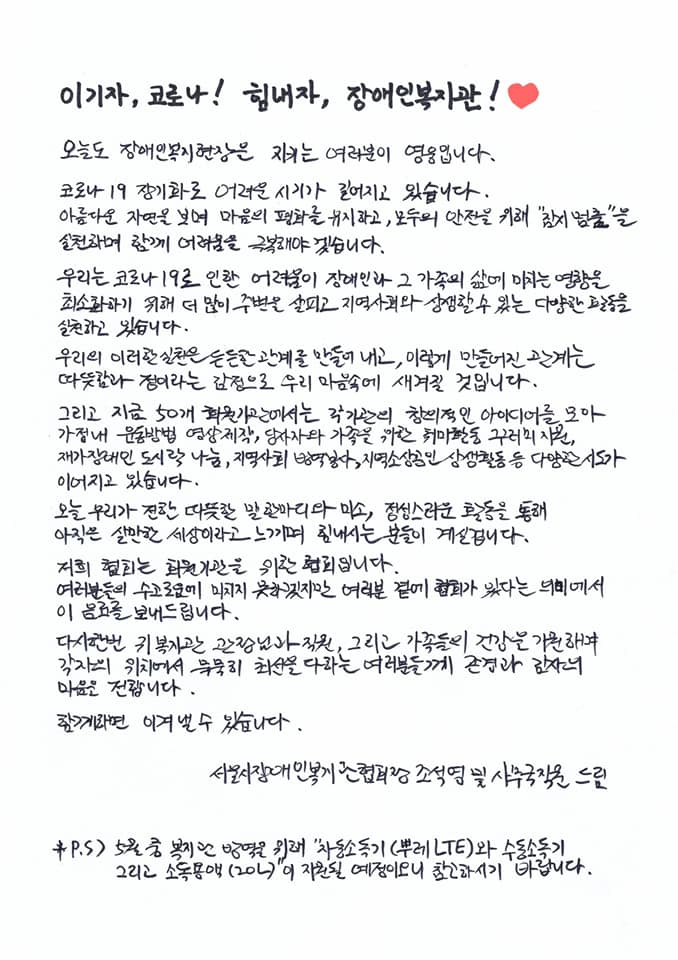 이기자, 코로나! 힘내자, 장애인복지관! ❤
오늘도 장애인복지현장을 지키는 여러분이 영웅입니다.
코로나 19 장기화로 어려운 시기가 길어지고 있습니다.
아름다운 자연을 보며 마음의 평화를 유지하고, 모두의 안전을 위해 "잠시 멈춤"을
실천하며 함께 어려움을 극복해야겠습니다.
우리는 코로나 19로 인한 어려움이 장애인과 그 가족의 삶에 미치는 영향을
최소화하기 위해 더 많이 주변을 살피고 지역사회와 상생할 수 있는 다양한 활동을
실천하고 있습니다.
우리의 이러한 실천은 든든한 관계를 만들어 내고, 이렇게 만들어진 관계는
따뜻함과 정이라는 감정으로 우리 마음속에 새겨질 것입니다.
그리고 지금 50개 회원기관에서는 각 기관의 창의적인 아이디어를 모아
가정 내 운동방법 영상제작, 당사자와 가족을 위한 취미활동 꾸러미 지원,
재가장애인 도시락 나눔, 지역사회 방역봉사, 지역소상공인 상생활동 등 다양한 시도가
이어지고 있습니다.
오늘 우리가 전한 따뜻한 말 한마디와 미소, 정성스러운 활동을 통해
아직은 살만한 세상이라고 느끼며 힘내시는 분들이 계실겁니다.
저희 협회는 회원기관을 위한 협회입니다.
여러분들의 수고로움에 미치지 못하겠지만 여러분 곁에 협회가 있다는 의미에서
이 음료를 보내드립니다.
다시한번 귀 복지관 관장님과 직원, 그리고 가족들의 건강을 기원하며
각자의 위치에서 묵묵히 최선을 다하는 여러분들께 존경과 감사의
마음을 전합니다.
함께라면 이겨낼 수 있습니다.
서울시장애인복지관협회장 조석영 및 사무국직원 드림
*P.S) 5월 중 복지관 방역을 위해 "자동소독기(뿌레 LTE)와 수동소독기
그리고 소독용액(20L)"이 지원될 예정이오니 참고하시기 바랍니다.